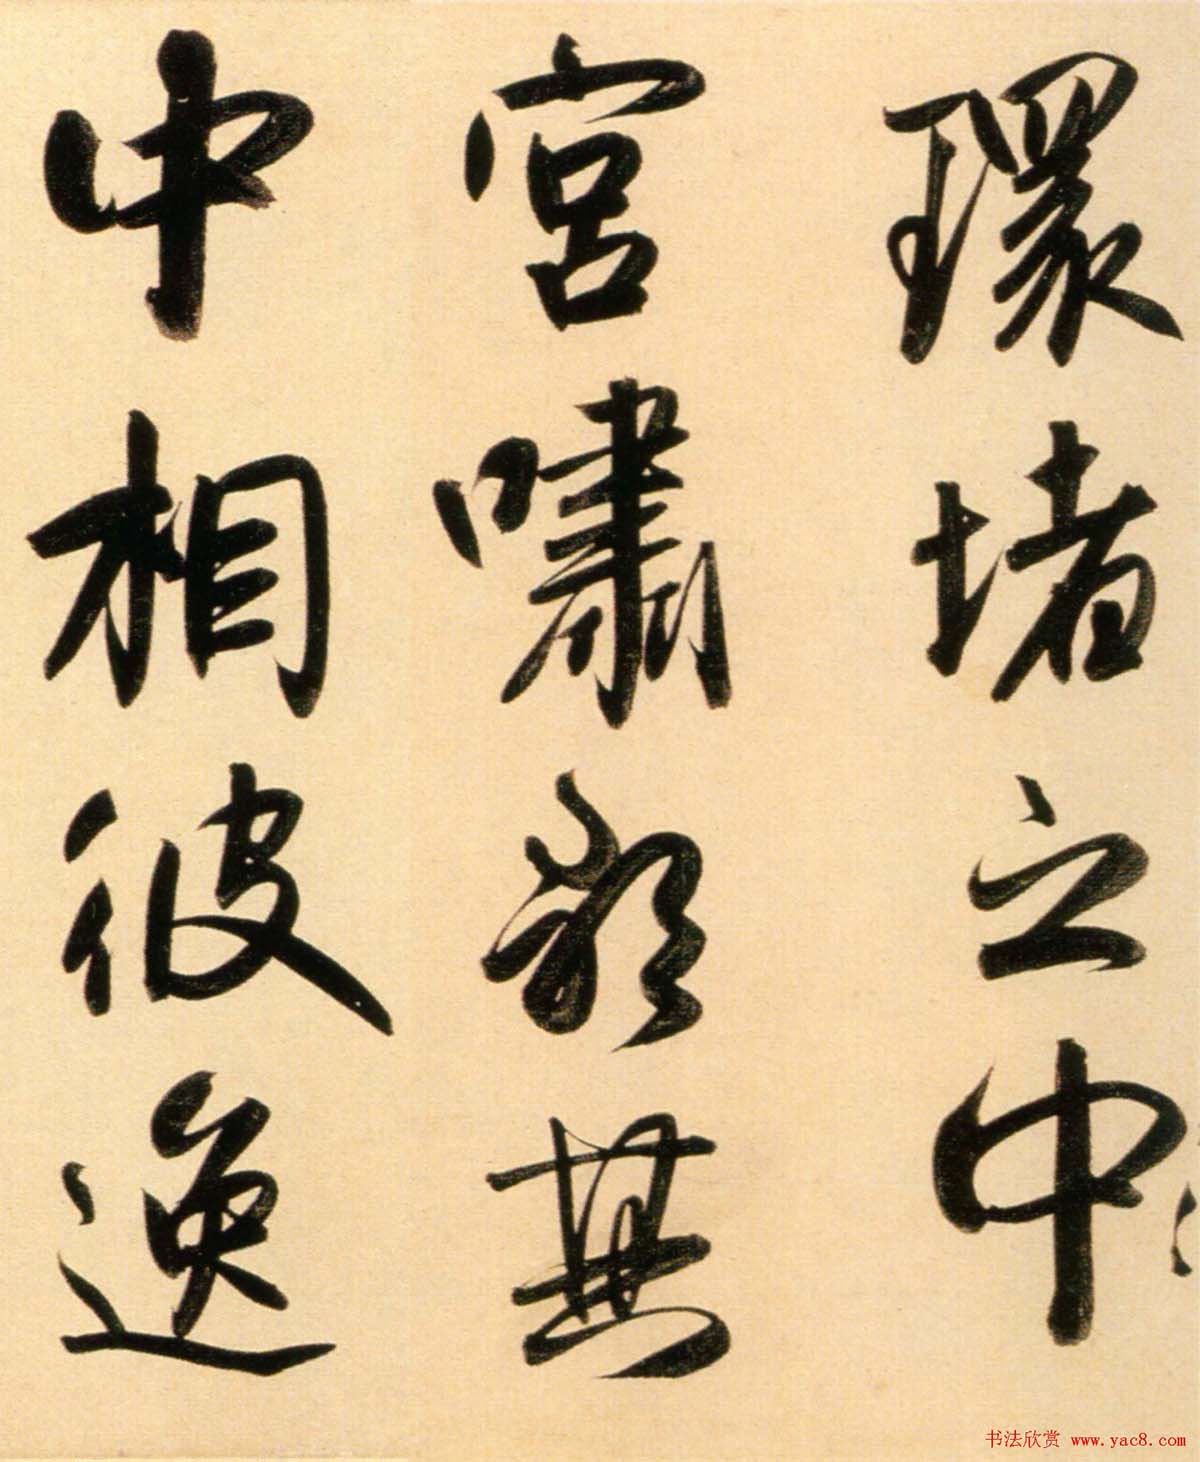 環堵之中
宮嘯歌其
中相彼逸
书法欣赏 www.yac8.com